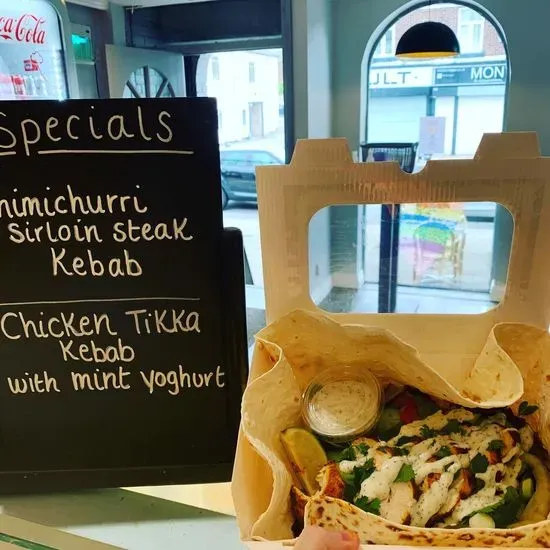 Coca-Cola
Specials
nimichurri
sirloin steak
Kebab
Chicken Tikka
Kebab
with mint yoghurt
J.L.T.
MON